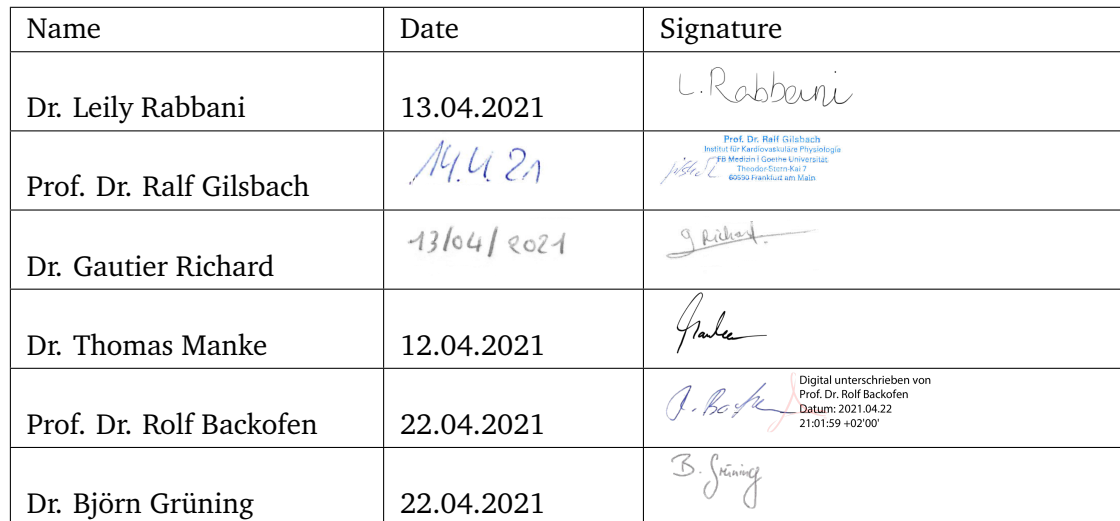 Name Date Signature
Dr. Leily Rabbani 13.04.2021 L. Rabbani
Prof. Dr. Ralf Gilsbach 14.4.21
Prof. Dr. Ralf Gilsbach
Institut für Kardiovaskuläre Physiologie
FB Medizin | Goethe Universität
Theodor-Stern-Kai 7
60590 Frankfurt am Main
Dr. Gautier Richard 13/04/2021 g Richard.
Dr. Thomas Manke 12.04.2021 Manke
Prof. Dr. Rolf Backofen 22.04.2021 R. Backofen
Digital unterschrieben von
Prof. Dr. Rolf Backofen
Datum: 2021.04.22
21:01:59 +02'00'
Dr. Björn Grüning 22.04.2021 B. Grüning